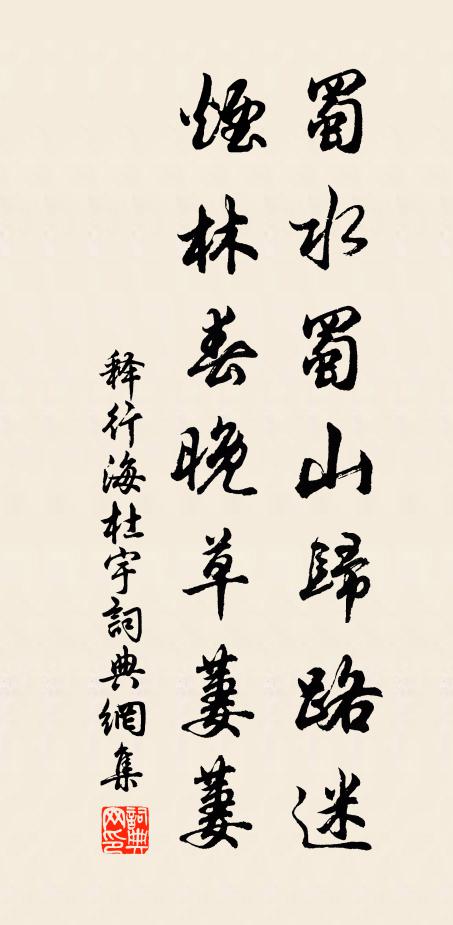 蜀水蜀山歸路迷
煙林春晚草萋萋
释行海杜宇詞典網集
詞典
网印